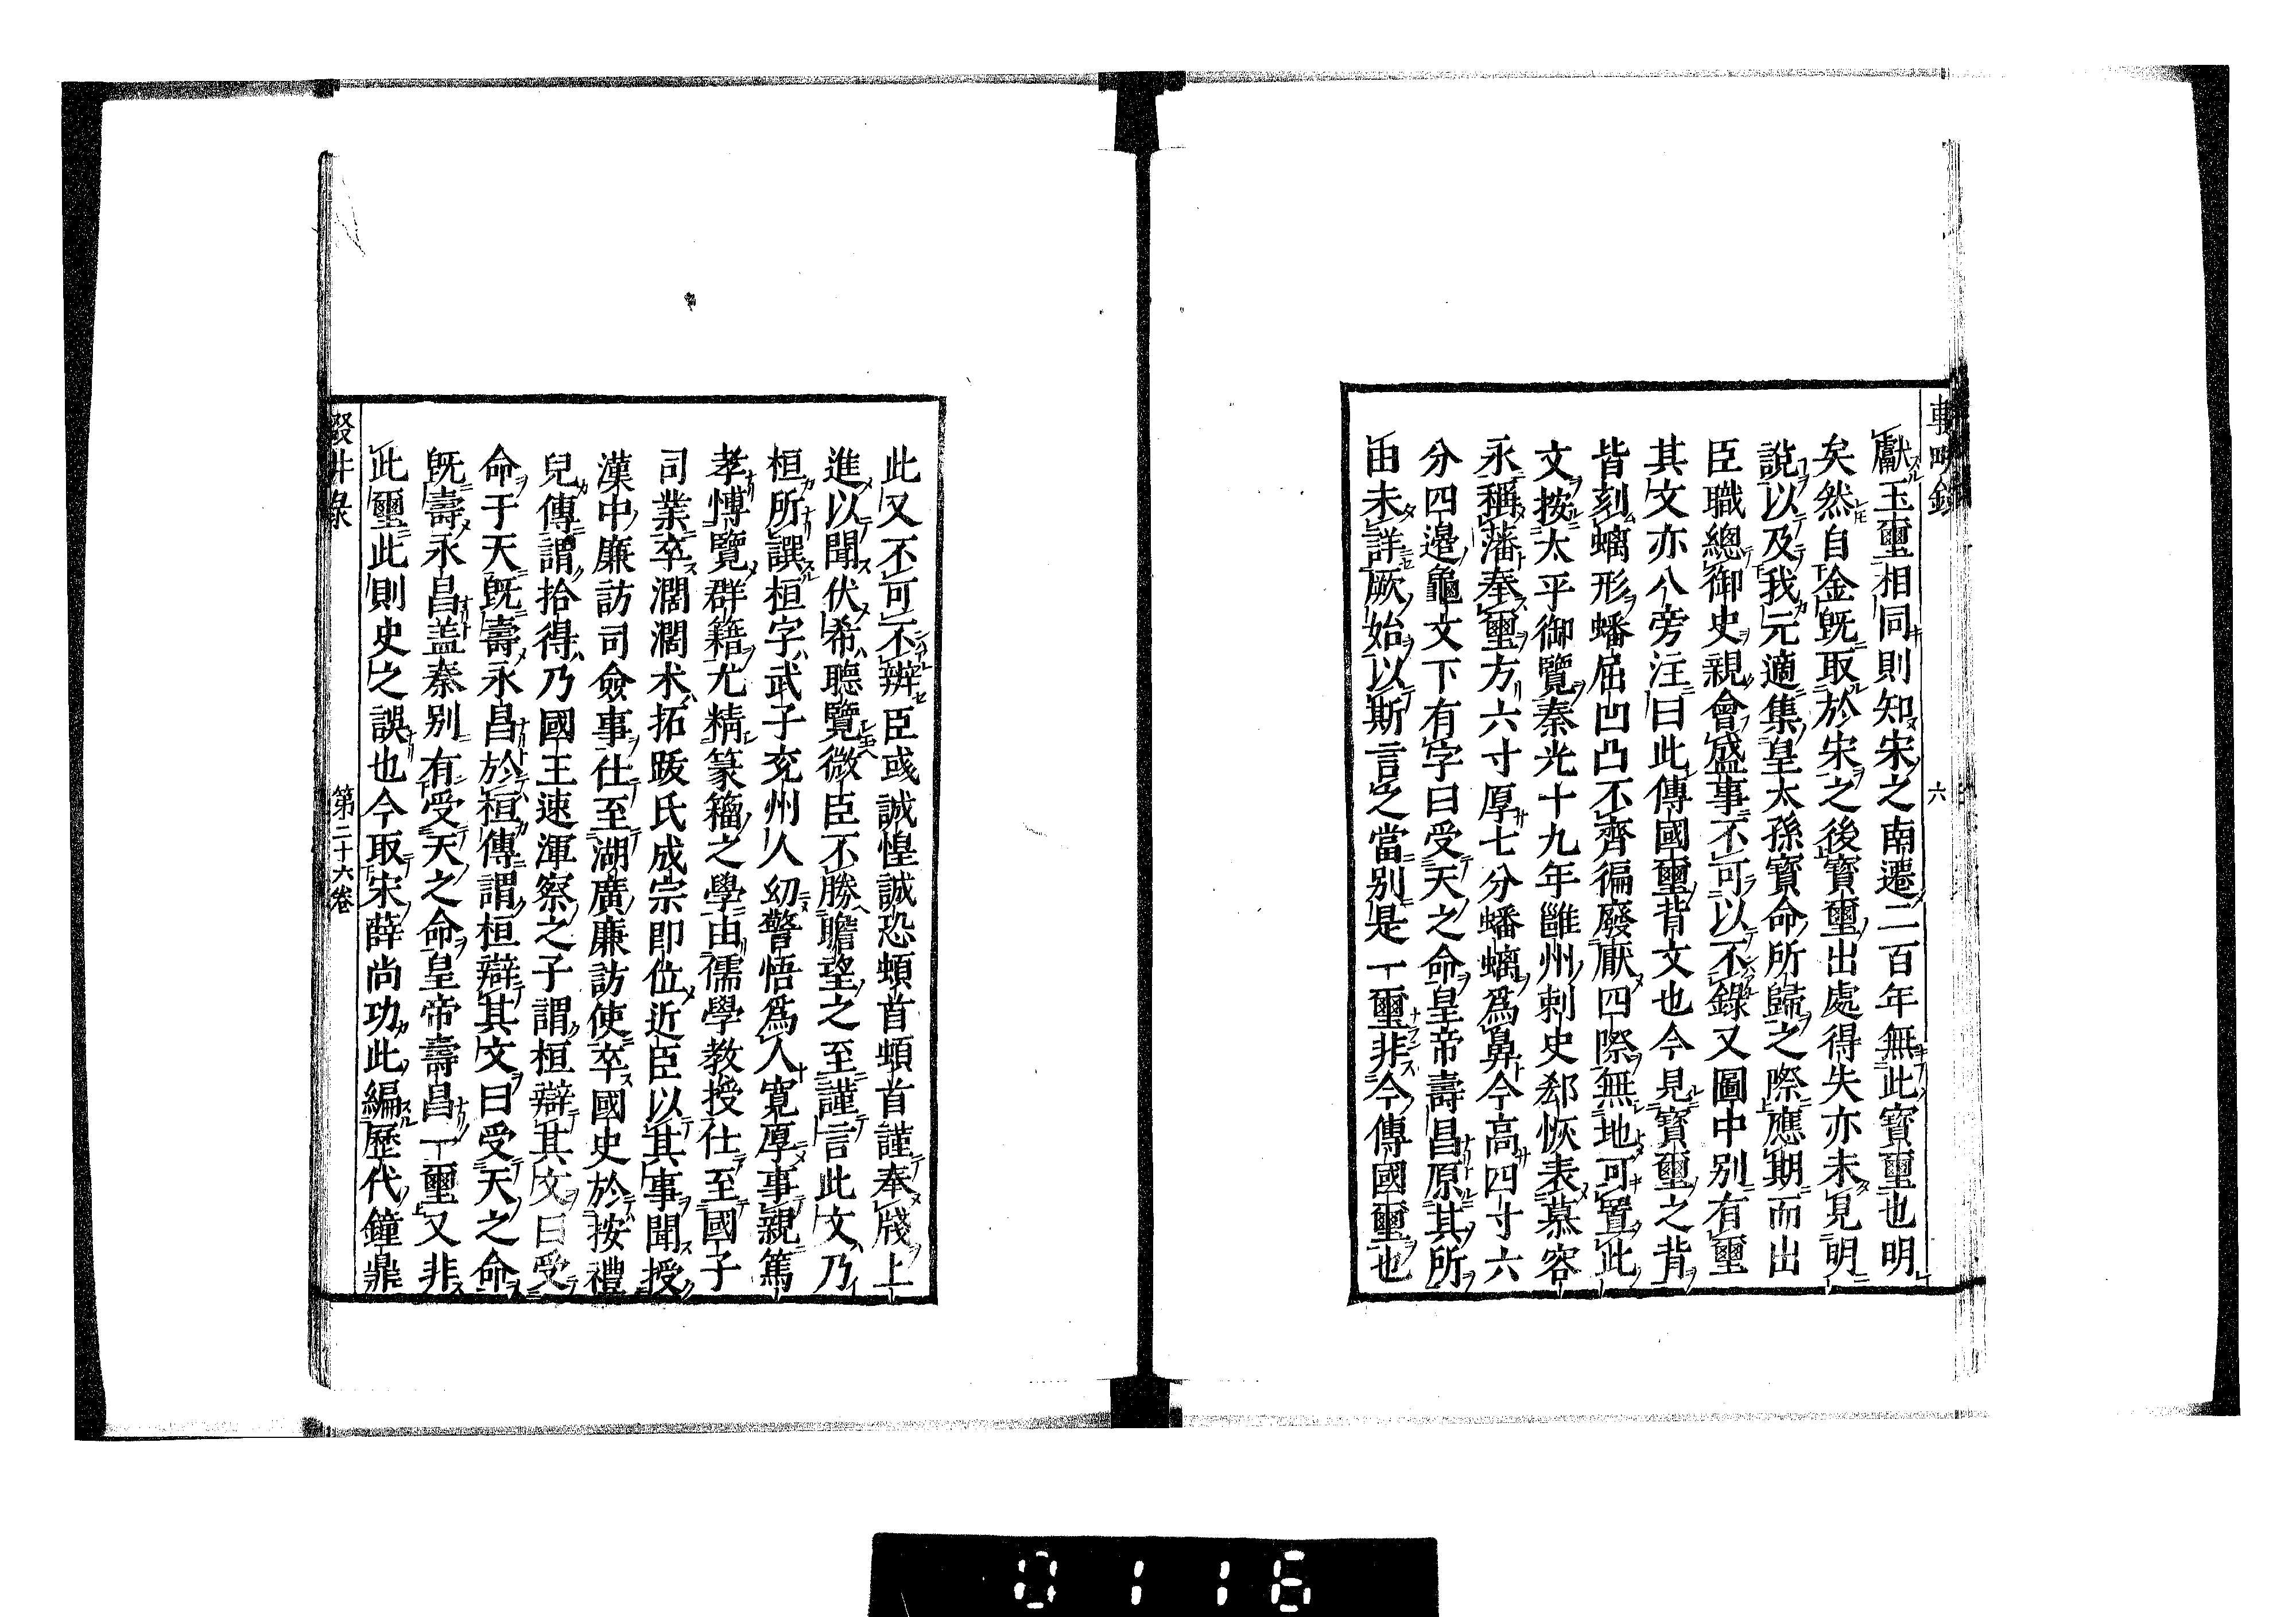 六
獻玉璽相同則知宋之南遷二百年無此寶璽也明
矣然自金旣取於宋之後寶璽出處得失亦未見明
說以及我元適集皇太孫寶命所歸之際應期而出
臣職總御史親會盛事不可以不錄又圖中别有璽
其文亦八旁注曰此傳國璽背文也今見寶璽之背
皆刻螭形蟠屈凹凸不齊徧廢厭四際無地可置此
文按太平御覽秦光十九年雝州刺史郄恢表慕容
永稱藩奉璽方六寸厚七分蟠螭爲鼻今高四寸六
分四邉龜文下有字曰受天之命皇帝壽昌原其所
由未詳厥始以斯言之當别是一璽非今傳國璽也
此又不可不辨臣或誠惶誠恐頓首頓首謹奉牋上
進以聞伏希聽覽微臣不勝瞻望之至謹言此文乃
桓所譔桓字武子兖州人幼警悟爲人寛厚事親篤
孝愽覽群籍尤精篆籀之學由儒學教授仕至國子
司業卒濶濶朮拓跋氏成宗即位近臣以其事聞授
漢中廉訪司僉事仕至湖廣廉訪使卒國史於按禮
兒傳謂拾得乃國王速渾察之子謂桓辯其文曰受
命于天旣壽永昌於桓傳謂桓辯其文曰受天之命
旣壽永昌盖秦别有受天之命皇帝壽昌一璽又非
此璽此則史之誤也今取宋薛尚功此編歷代鐘鼎
輟耕錄 第二十六卷
0116